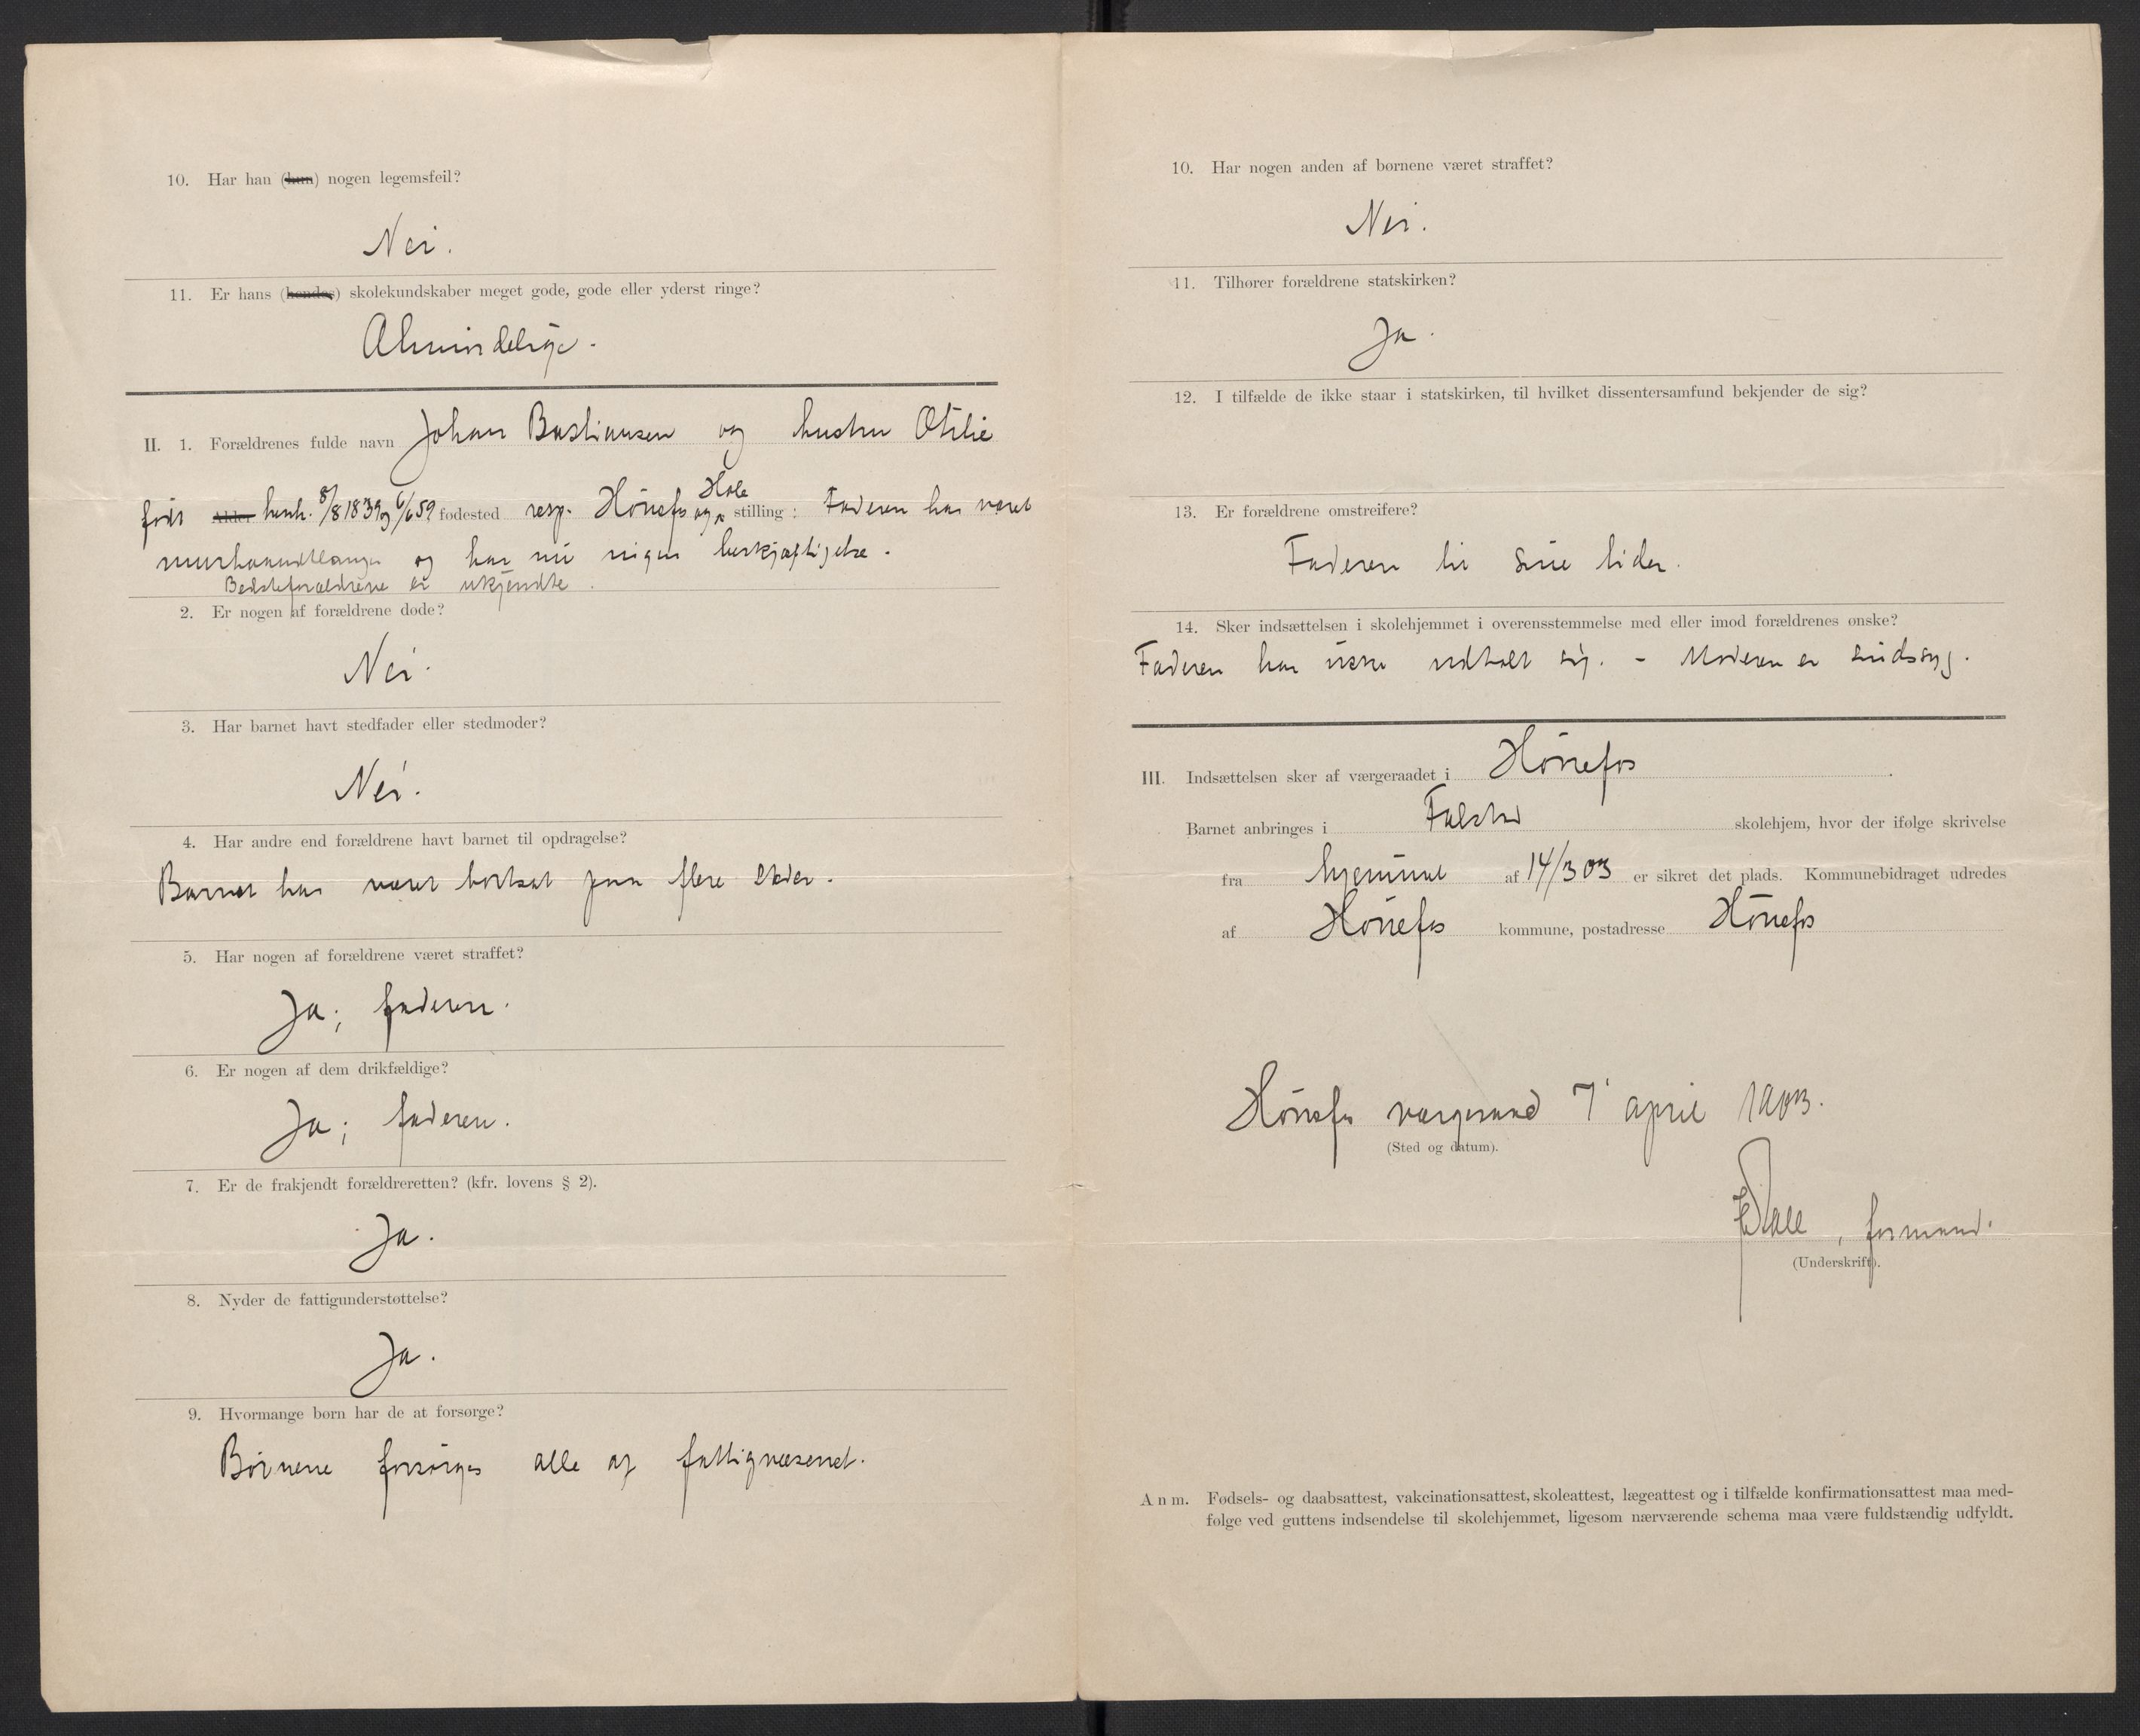 10. Har han (hun) nogen legemsfeil?
Nei.
11. Er hans (hendes) skolekundskaber meget gode, gode eller yderst ringe?
Almindelige.
II. 1. Forældrenes fulde navn Johan Bastiansen og hustru Otilie
født Alder henh. 8/8 1839 og 6/6 59 fødested resp. Hönefos og Hole stilling: Faderen har været
murhaandtlanger og har nu ingen beskjæftigelse.
Bedsteforældrene er ukjendte.
2. Er nogen af forældrene døde?
Nei.
3. Har barnet havt stedfader eller stedmoder?
Nei.
4. Har andre end forældrene havt barnet til opdragelse?
Barnet har været bortsat paa flere steder.
5. Har nogen af forældrene været straffet?
Ja; faderen.
6. Er nogen af dem drikfældige?
Ja; faderen.
7. Er de frakjendt forældreretten? (kfr. lovens § 2).
Ja.
8. Nyder de fattigunderstøttelse?
Ja.
9. Hvormange børn har de at forsørge?
Börnene forsörges alle af fattigvæsenet.
10. Har nogen anden af børnene været straffet?
Nei.
11. Tilhører forældrene statskirken?
Ja.
12. I tilfælde de ikke staar i statskirken, til hvilket dissentersamfund bekjender de sig?
13. Er forældrene omstreifere?
Faderen til sine tider.
14. Sker indsættelsen i skolehjemmet i overensstemmelse med eller imod forældrenes ønske?
Faderen har ikke udtalt sig. - Moderen er sindssyg.
III. Indsættelsen sker af værgeraadet i Hönefos
Barnet anbringes i Falstad skolehjem, hvor der ifølge skrivelse
fra hjemmet af 14/3 03 er sikret det plads. Kommunebidraget udredes
af Hönefos kommune, postadresse Hönefos
Hönefos værgeraad 7' april 1903.
(Sted og datum).
Dall, formand.
(Underskrift).
Anm. Fødsels- og daabsattest, vakcinationsattest, skoleattest, lægeattest og i tilfælde konfirmationsattest maa med-
følge ved guttens indsendelse til skolehjemmet, ligesom nærværende schema maa være fuldstændig udfyldt.